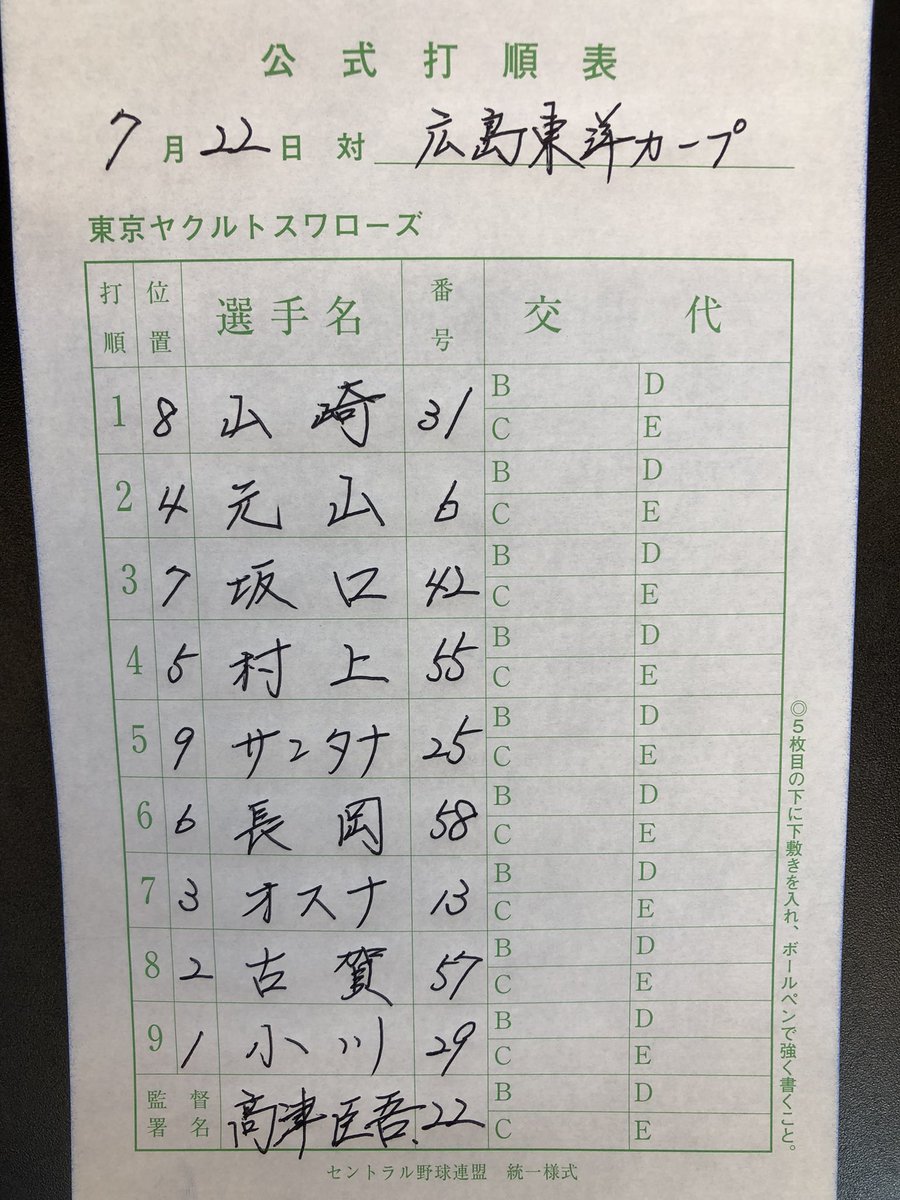 公式打順表
7月22日 対 広島東洋カープ
東京ヤクルトスワローズ
打順 位置 選手名 番号 交代
1 8 山崎 31 B D
C E
2 4 元山 6 B D
C E
3 7 坂口 42 B D
C E
4 5 村上 55 B D
C E
5 9 サンタナ 25 B D
C E
6 6 長岡 58 B D
C E
7 3 オスナ 13 B D
C E
8 2 古賀 57 B D
C E
9 1 小川 29 B D
C E
監督署名 高津臣吾.22 B D
C E
◎5枚目の下に下敷きを入れ、ボールペンで強く書くこと。
セントラル野球連盟 統一様式